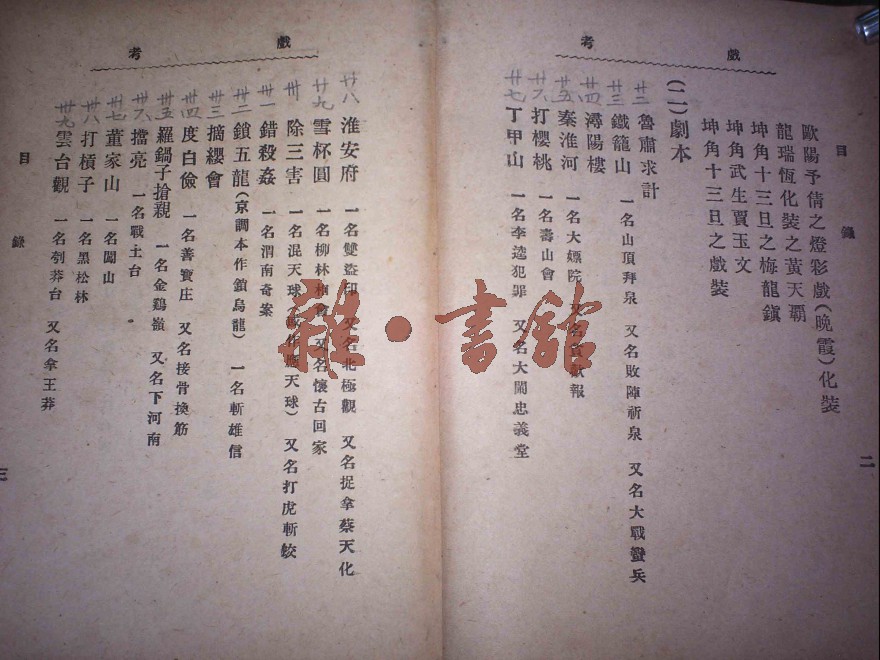 戲考
目錄
二
歐陽予倩之燈彩戲(晚霞)化裝
龍瑞恆化裝之黃天霸
坤角十三旦之梅龍鎮
坤角武生賈玉文
坤角十三旦之戲裝
(二)劇本
廿二 魯肅求計
廿三 鐵籠山 一名山頂拜泉 又名敗陣祈泉 又名大戰蠻兵
廿四 潯陽樓
廿五 秦淮河 一名大嫖院 又名 報
廿六 打櫻桃 一名壽山會
廿七 丁甲山 一名李逵犯罪 又名大鬧忠義堂
戲考
廿八 淮安府 一名雙盜印 又名北極觀 又名捉拿蔡天化
廿九 雪杯圓 一名柳林 又名懷古回家
卅 除三害 一名混天球 天球) 又名打虎斬蛟
卅一 錯殺姦 一名渭南奇案
卅二 鎖五龍(京調本作鎖烏龍) 一名斬雄信
卅三 摘纓會
卅四 度白儉 一名善寶庄 又名接骨換筋
卅五 羅鍋子搶親 一名金鷄嶺 又名下河南
卅六 擋亮 一名戰土台
卅七 董家山 一名鬧山
卅八 打槓子 一名黑松林
卅九 雲台觀 一名刳莽台 又名拿王莽
目錄
三
雜·書館